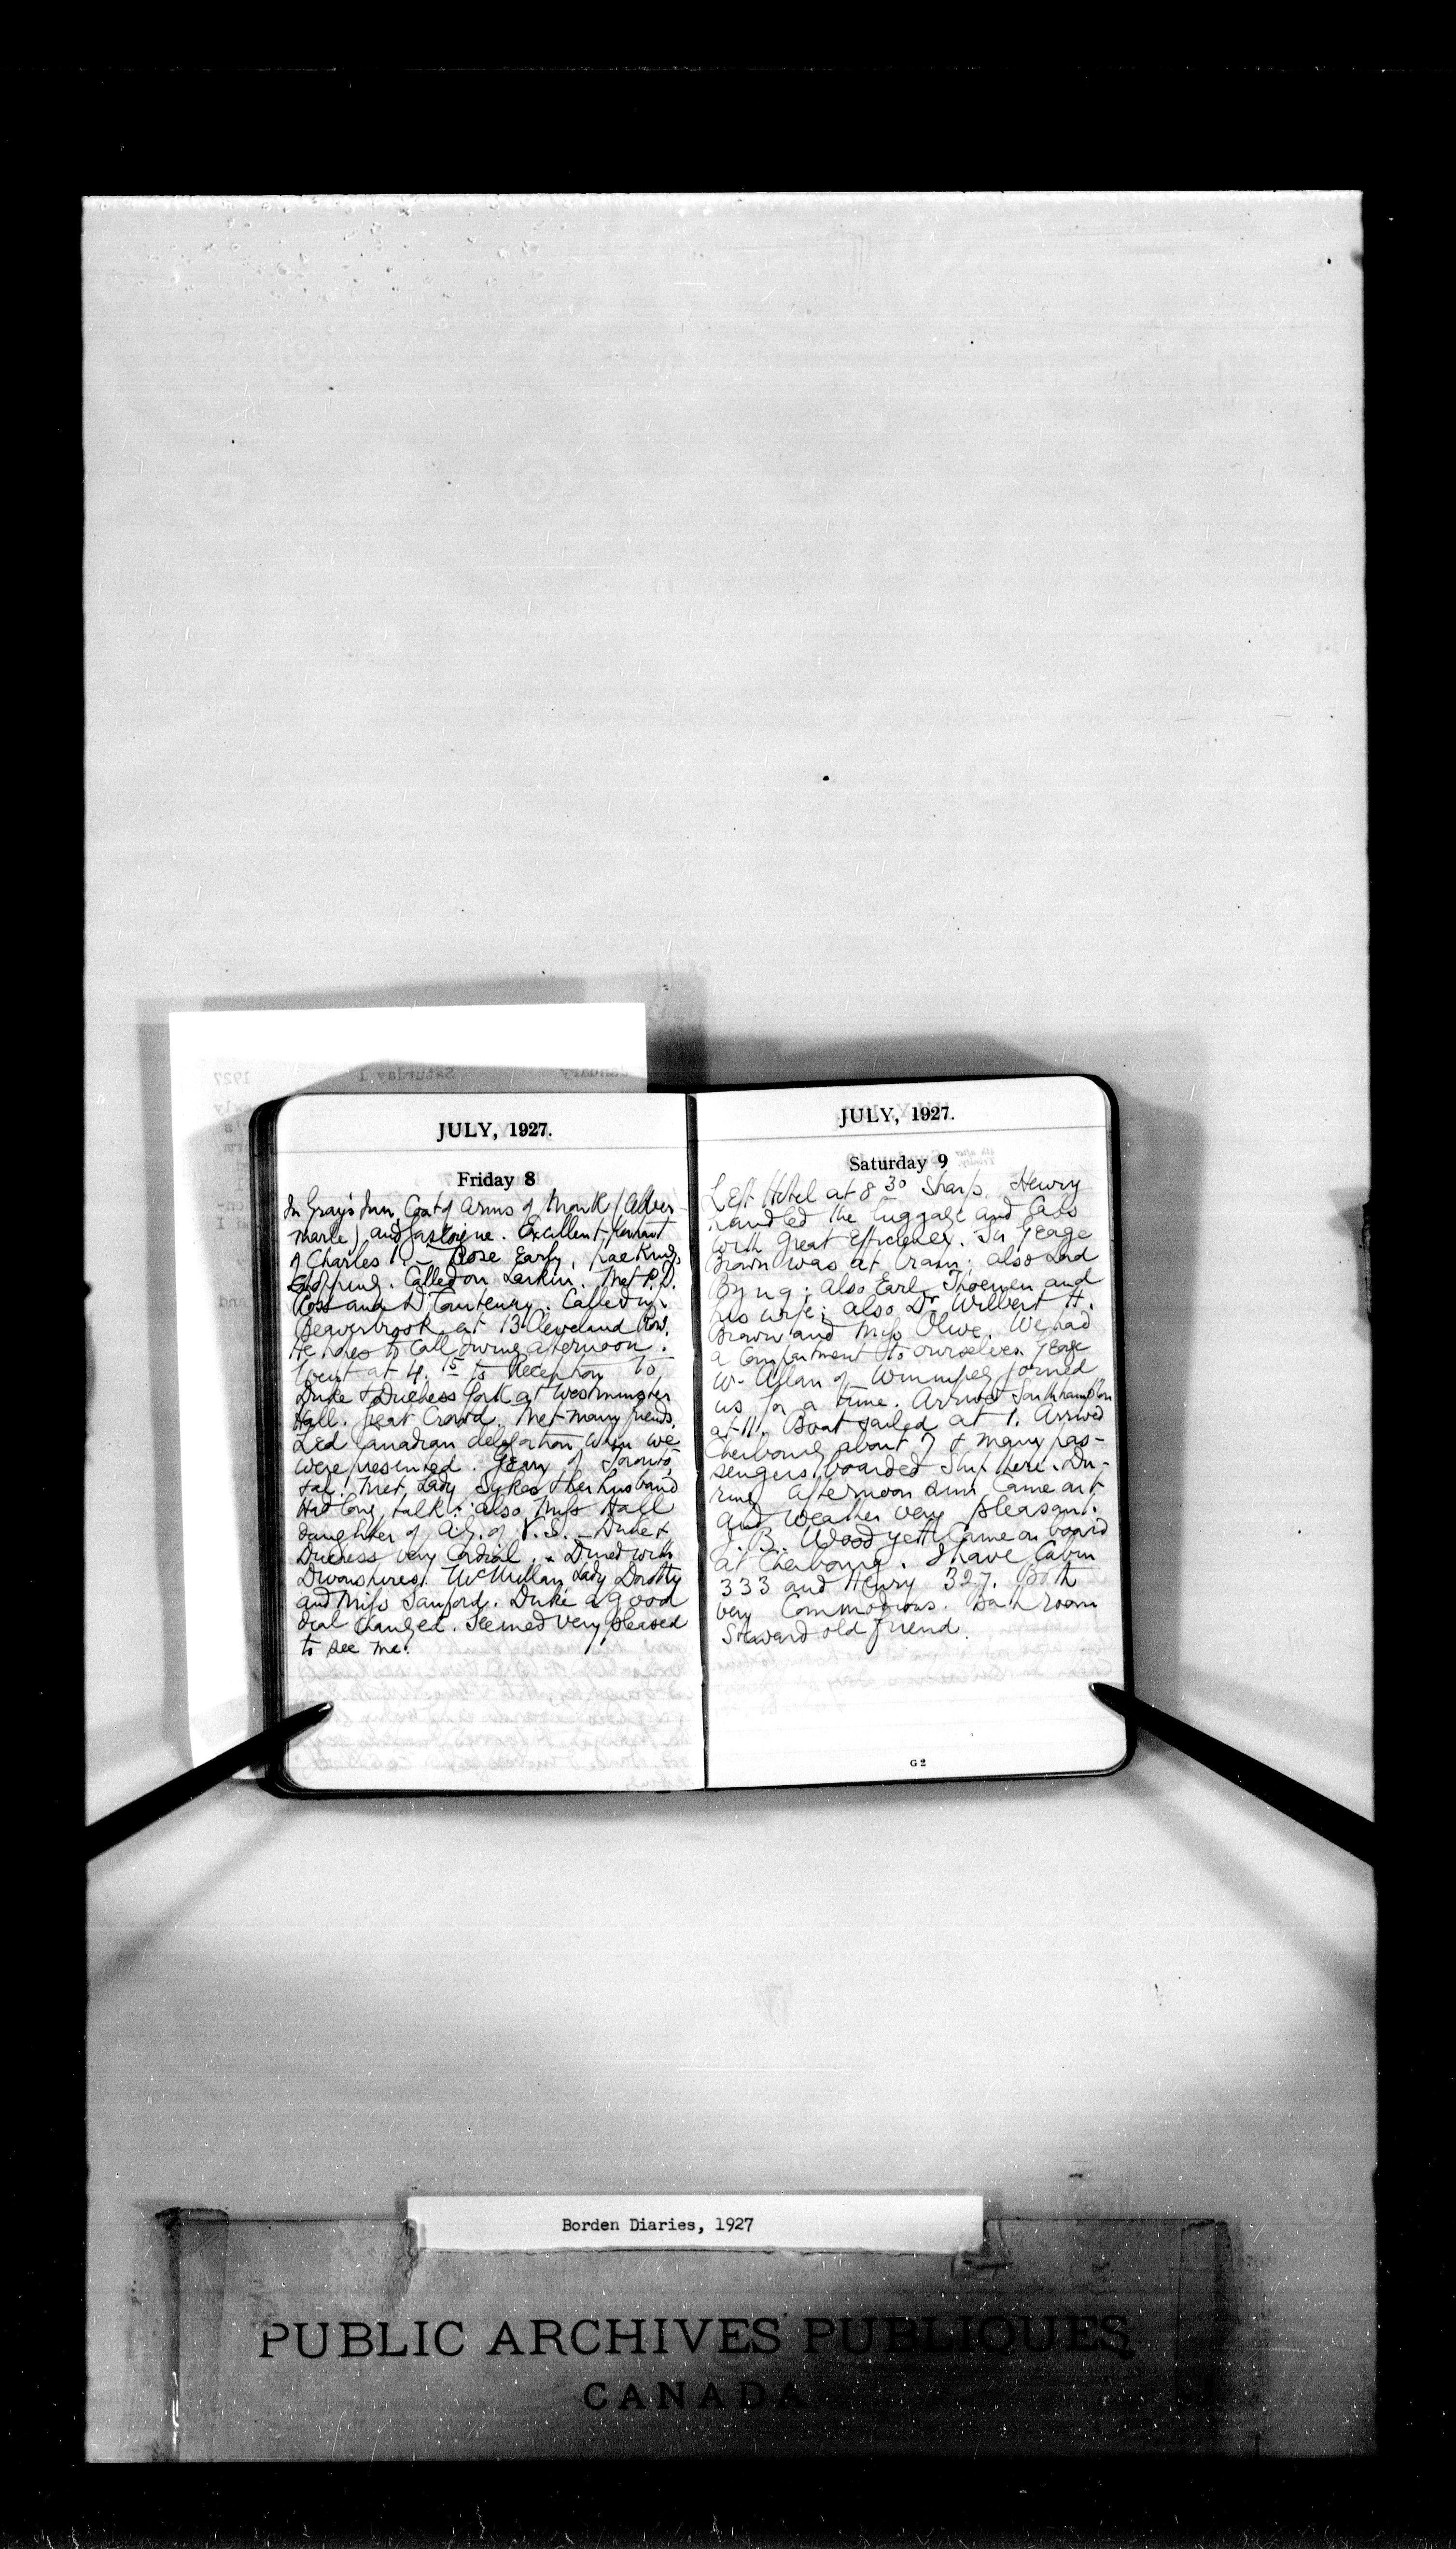 JULY, 1927.
Friday 8
In Gray's Inn, Coat of Arms of Monk (Alber-
marle) and Gascoigne. Excellent Portrait
of Charles I. – Rose Early, packing,
Shopping. Called on Larkin. Met P.D.
Ross and D'Courtenay. Called up
Beaverbrook at 13 Cleveland Row.
He hopes to call during afternoon.
Went at 4.15 to Reception to
Duke & Duchess York at Westminster
Hall. Great Crowd. Met many friends.
Led Canadian delegation when we
were presented. Geary of Toronto,
Met Lady Sykes & her husband
Had long talk: also Miss Hall
daughter of A.G. of N.S. – Duke &
Duchess very Cordial. – Dined with
Devonshires. McMillan, Lady Dorothy
and Miss Sanford. Duke a good
deal changed. Seemed very pleased
to see me.
JULY, 1927.
Saturday 9
Left Hotel at 8 30 Sharp. Henry
handled the luggage and taxis
with Great Efficiency. Sir George
Brown was at train; also Lord
Byng; also Earl and
his wife; also Dr Wilbert H.
Brown and Miss Olive. We had
a Compartment to ourselves. George
W. Allan of Winnipeg joined
us for a time. Arrived Southampton
at 11. Boat sailed at 1. Arrived
Cherbourg about 7 & many pas-
sengers boarded Ship here. Du-
ring afternoon Sun Came out
and weather very pleasant.
J. B. Woodyatt Came on board
at Cherbourg. I have Cabin
333 and Henry 327. Both
very Commodious. Bath room
Steward old friend.
G 2
Borden Diaries, 1927
PUBLIC ARCHIVES PUBLIQUES
CANADA